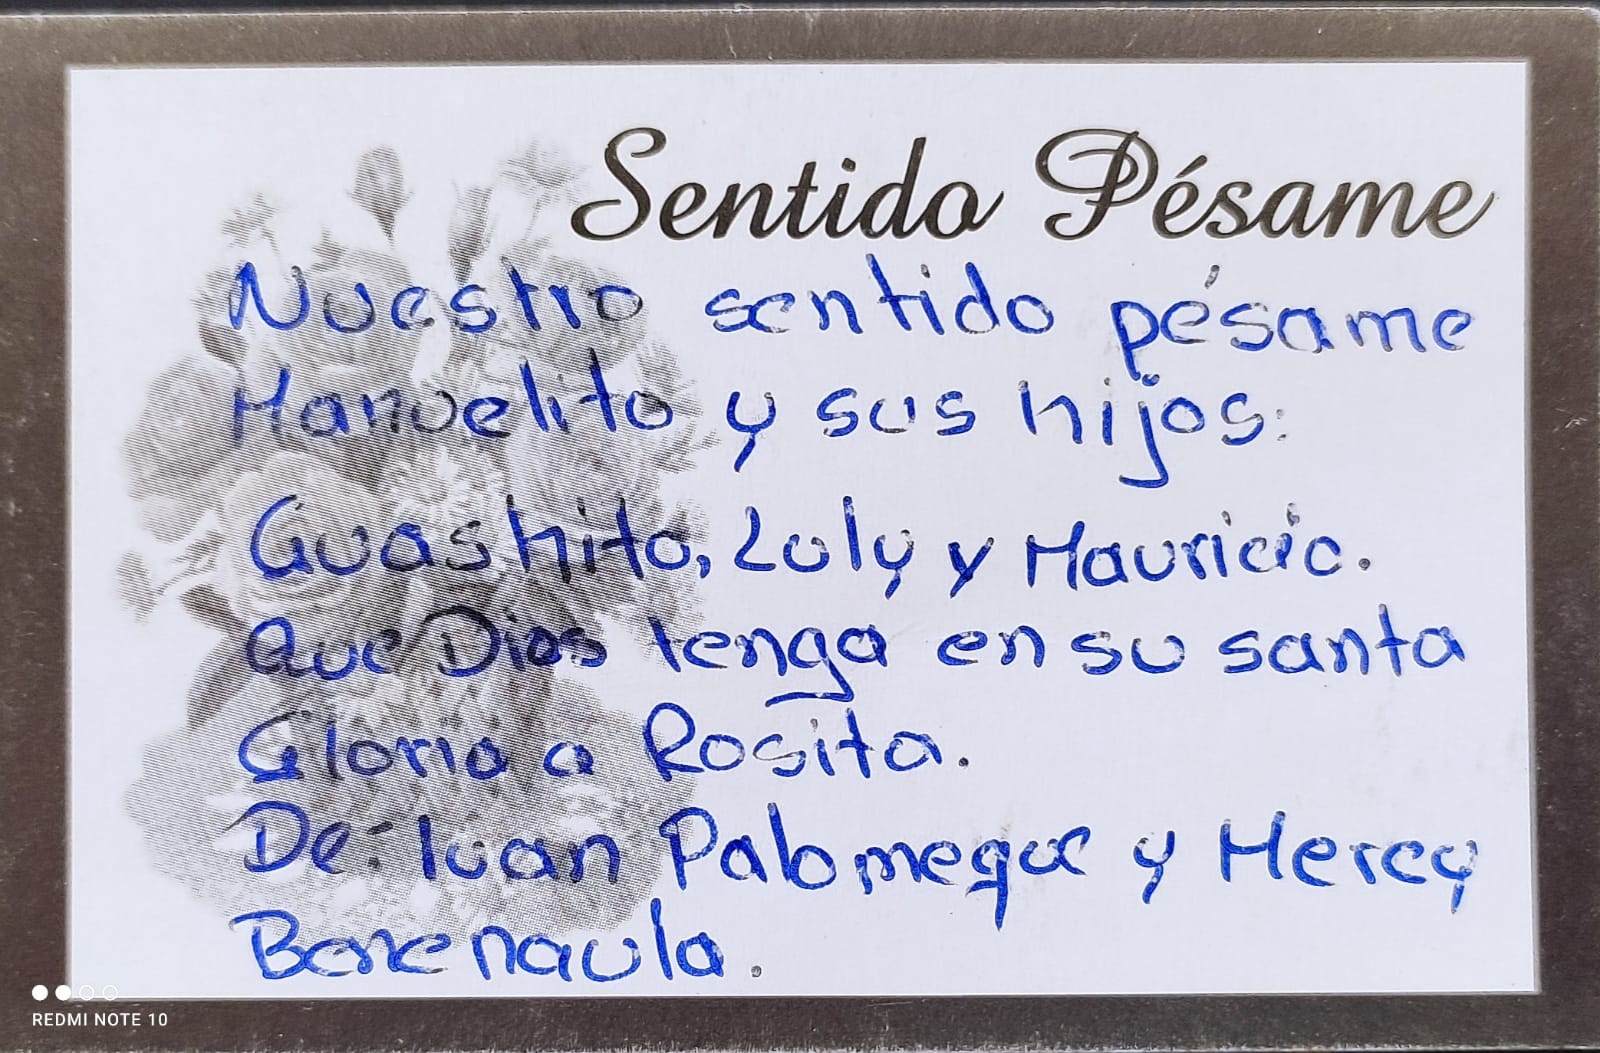 Sentido Pésame
Nuestro sentido pésame
Manuelito y sus hijos:
Guashito, Luly y Mauricio.
Que Dios tenga en su santa
Gloria a Rosita.
De: Iván Palomeque y Mercy
Berenaula.
REDMI NOTE 10